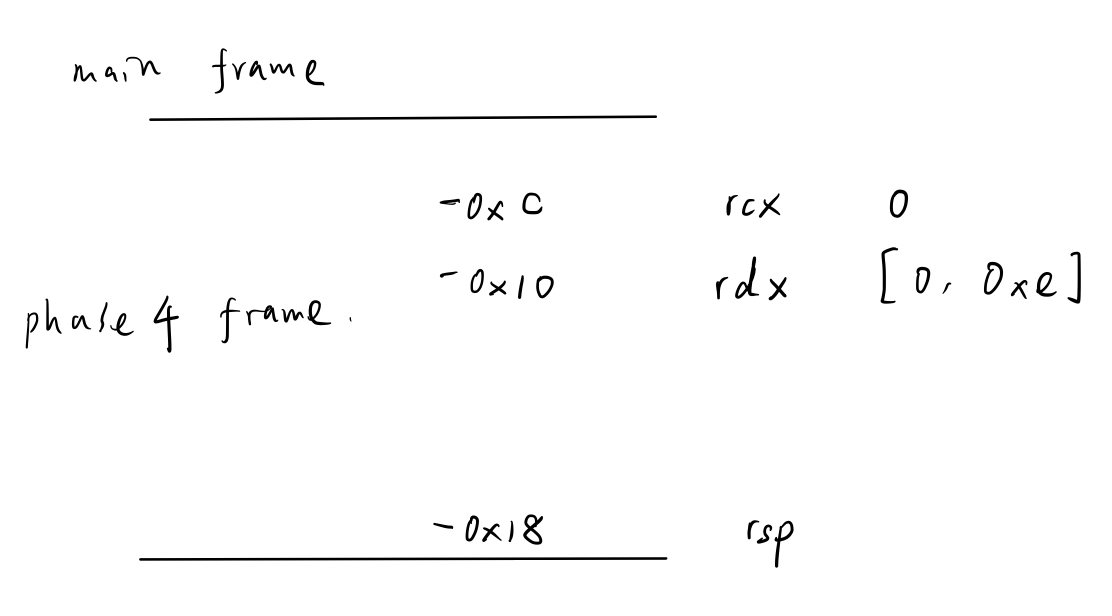 main frame
-0xC rcx 0
-0x10 rdx [0, 0xe]
phase 4 frame.
-0x18 rsp